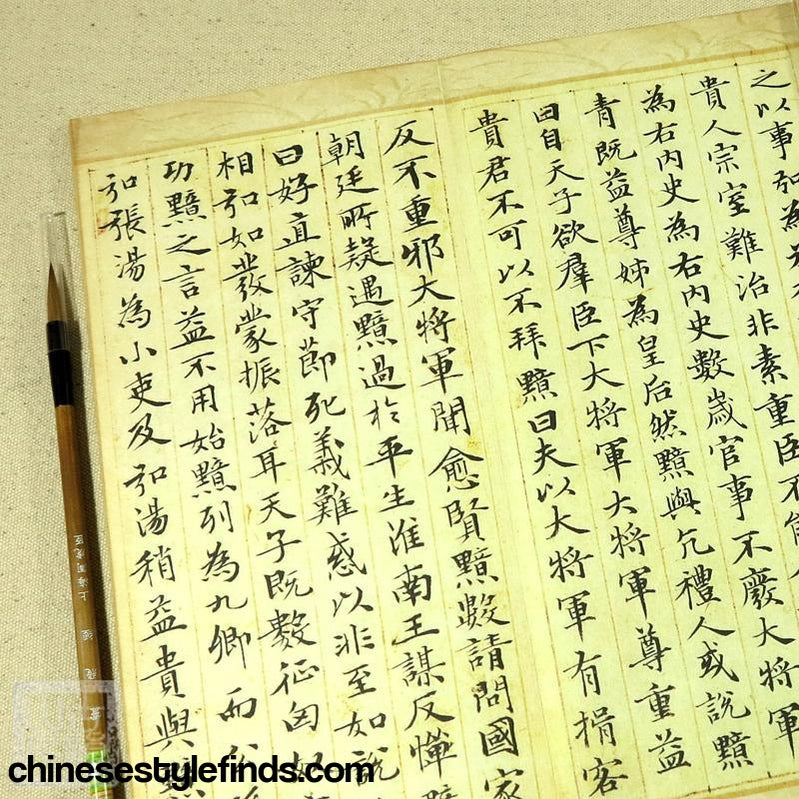 之以事弘為
貴人宗室難治非素重臣不能
為右內史為右內史數歲官事不廢大將軍
青既益尊姊為皇后然黯與亢禮人或說黯
曰自天子欲羣臣下大將軍大將軍尊重益
貴君不可以不拜黯曰夫以大將軍有揖客
反不重邪大將軍聞愈賢黯數請問國家
朝廷所疑遇黯過於平生淮南王謀反憚黯
曰好直諫守節死義難惑以非至如說
相弘如發蒙振落耳天子既數征匈奴
功黯之言益不用始黯列為九卿而公孫
弘張湯為小吏及弘湯稍益貴與黯
上海周虎臣
chinesestylefinds.com